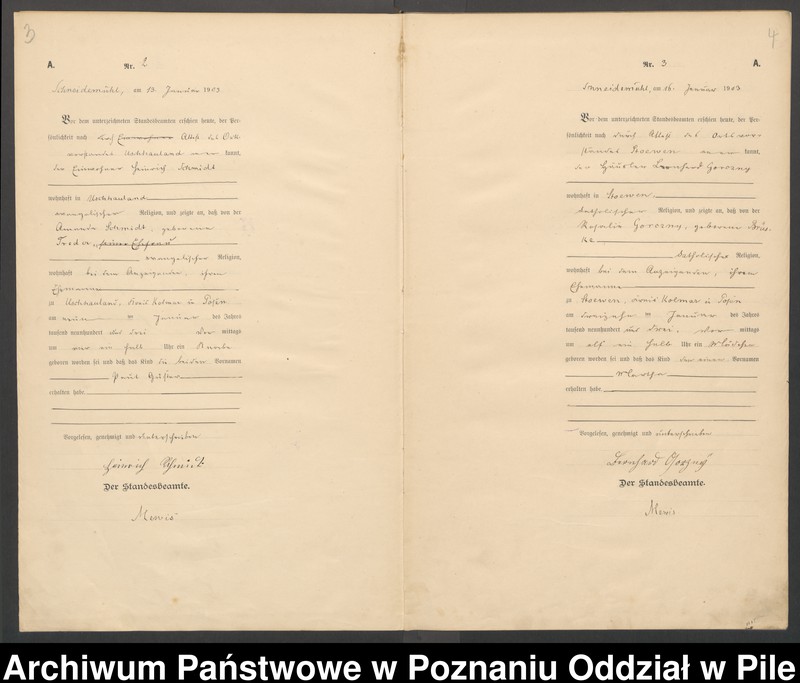 3
A.
Nr. 2
Schneidemühl, am 13. Januar 1903
Vor dem unterzeichneten Standesbeamten erschien heute, der Per-
sönlichkeit nach
Attest des Orts-
vorstandes Uschhauland kannt,
der Einwohner Heinrich Schmidt
wohnhaft in Uschhauland
evangelischer Religion, und zeigte an, daß von der
Amanda Schmidt, geborenen
Treda, seiner Ehefrau
evangelischer Religion,
wohnhaft bei dem Anzeigenden, ihrem
Ehemanne
zu Uschhauland, Kreis Kolmar in Posen
am neun ten Januar des Jahres
tausend neunhundert und drei mittags
um ein halb Uhr ein Knabe
geboren worden sei und daß das Kind die beiden Vornamen
Paul Gustav
erhalten habe
Vorgelesen, genehmigt und unterschrieben
Heinrich Schmidt
Der Standesbeamte.
Mewis
4
Nr. 3
A.
Schneidemühl, am 16. Januar 1903
Vor dem unterzeichneten Standesbeamten erschien heute, der Per-
sönlichkeit nach durch Attest des Ortsvor-
standes Stoewen kannt,
der Häusler Bernhard Gorczny
wohnhaft in Stoewen
katholischer Religion, und zeigte an, daß von der
Rosalie Gorczny, geborene Brus-
ke
katholischer Religion,
wohnhaft bei dem Anzeigenden, ihrem
Ehemanne
zu Stoewen, Kreis Kolmar in Posen
am dreizehn ten Januar des Jahres
tausend neunhundert und drei, vor mittags
um elf ein halb Uhr ein Mädchen
geboren worden sei und daß das Kind den einen Vornamen
Martha
erhalten habe
Vorgelesen, genehmigt und unterschrieben
Bernhard Gorzny
Der Standesbeamte.
Mewis
Archiwum Państwowe w Poznaniu Oddział w Pile